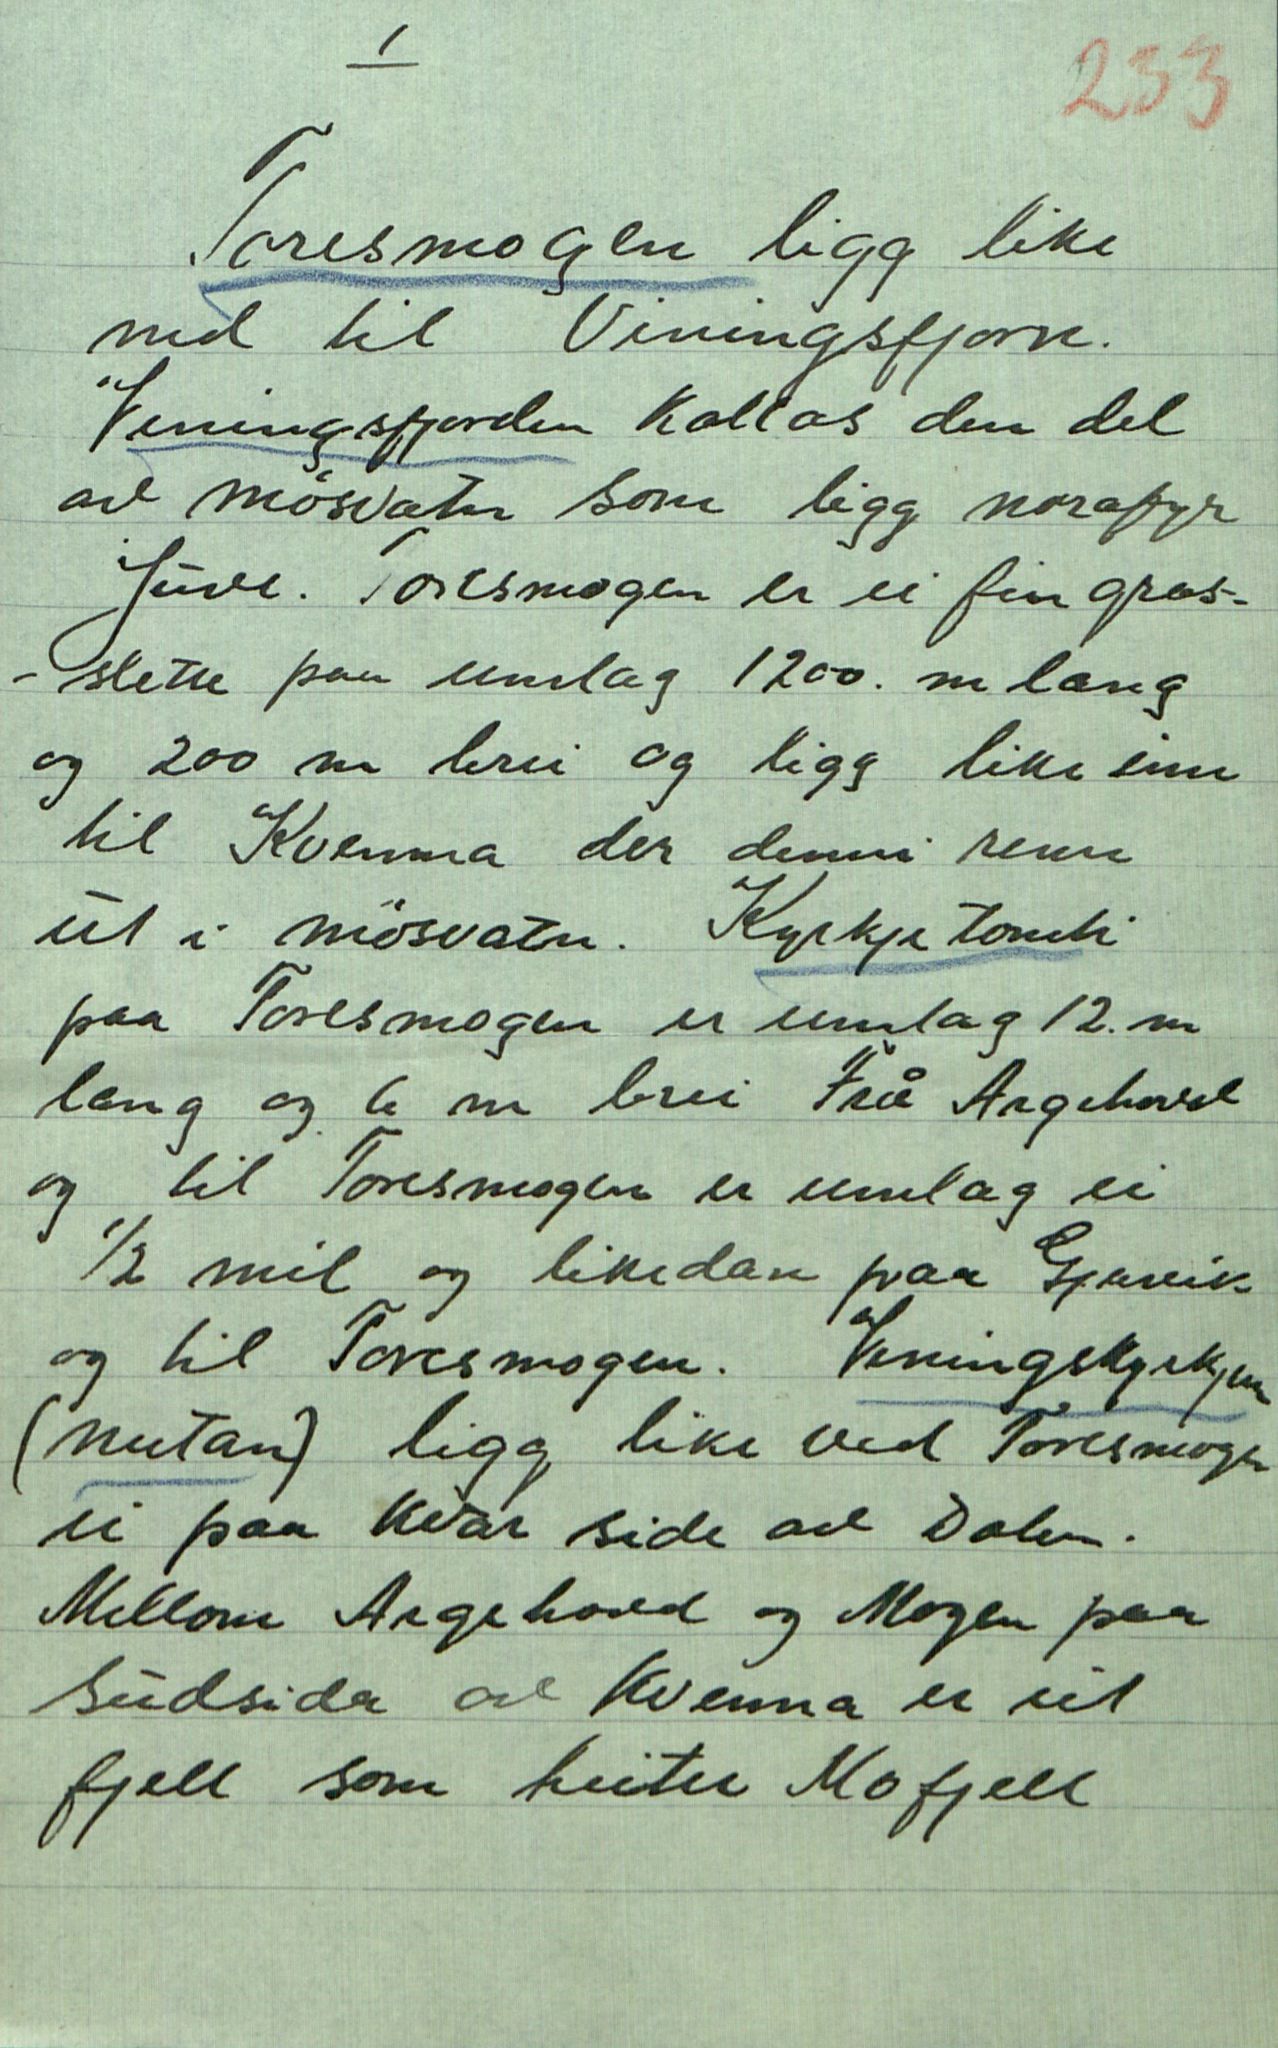 1
233
Toresmogen ligg like
ned til Viningsfjorn.
Veningsfjorden kallas den del
av Mösvatn som ligg norafyr
Juve. Toresmogen er ei fin gras-
-slette paa umlag 1200. m lang
og 200 m brei og ligg like inn
til Kvenna der denni renn
ut i Mösvatn. Kyrkjetomti
paa Toresmogen er umlag 12. m
lang og 6 m brei Frå Argehovd
og til Toresmogen er umlag ei
1/2 mil og likedan fraa Gjuvik
og til Toresmogen. Veningskyrkjun
(nutan) ligg like ved Toresmogen
ei paa kvar side av Dalen.
Mellom Argehovd og Mogen paa
sudsida av Kvenna er eit
fjell som heiter Mofjell